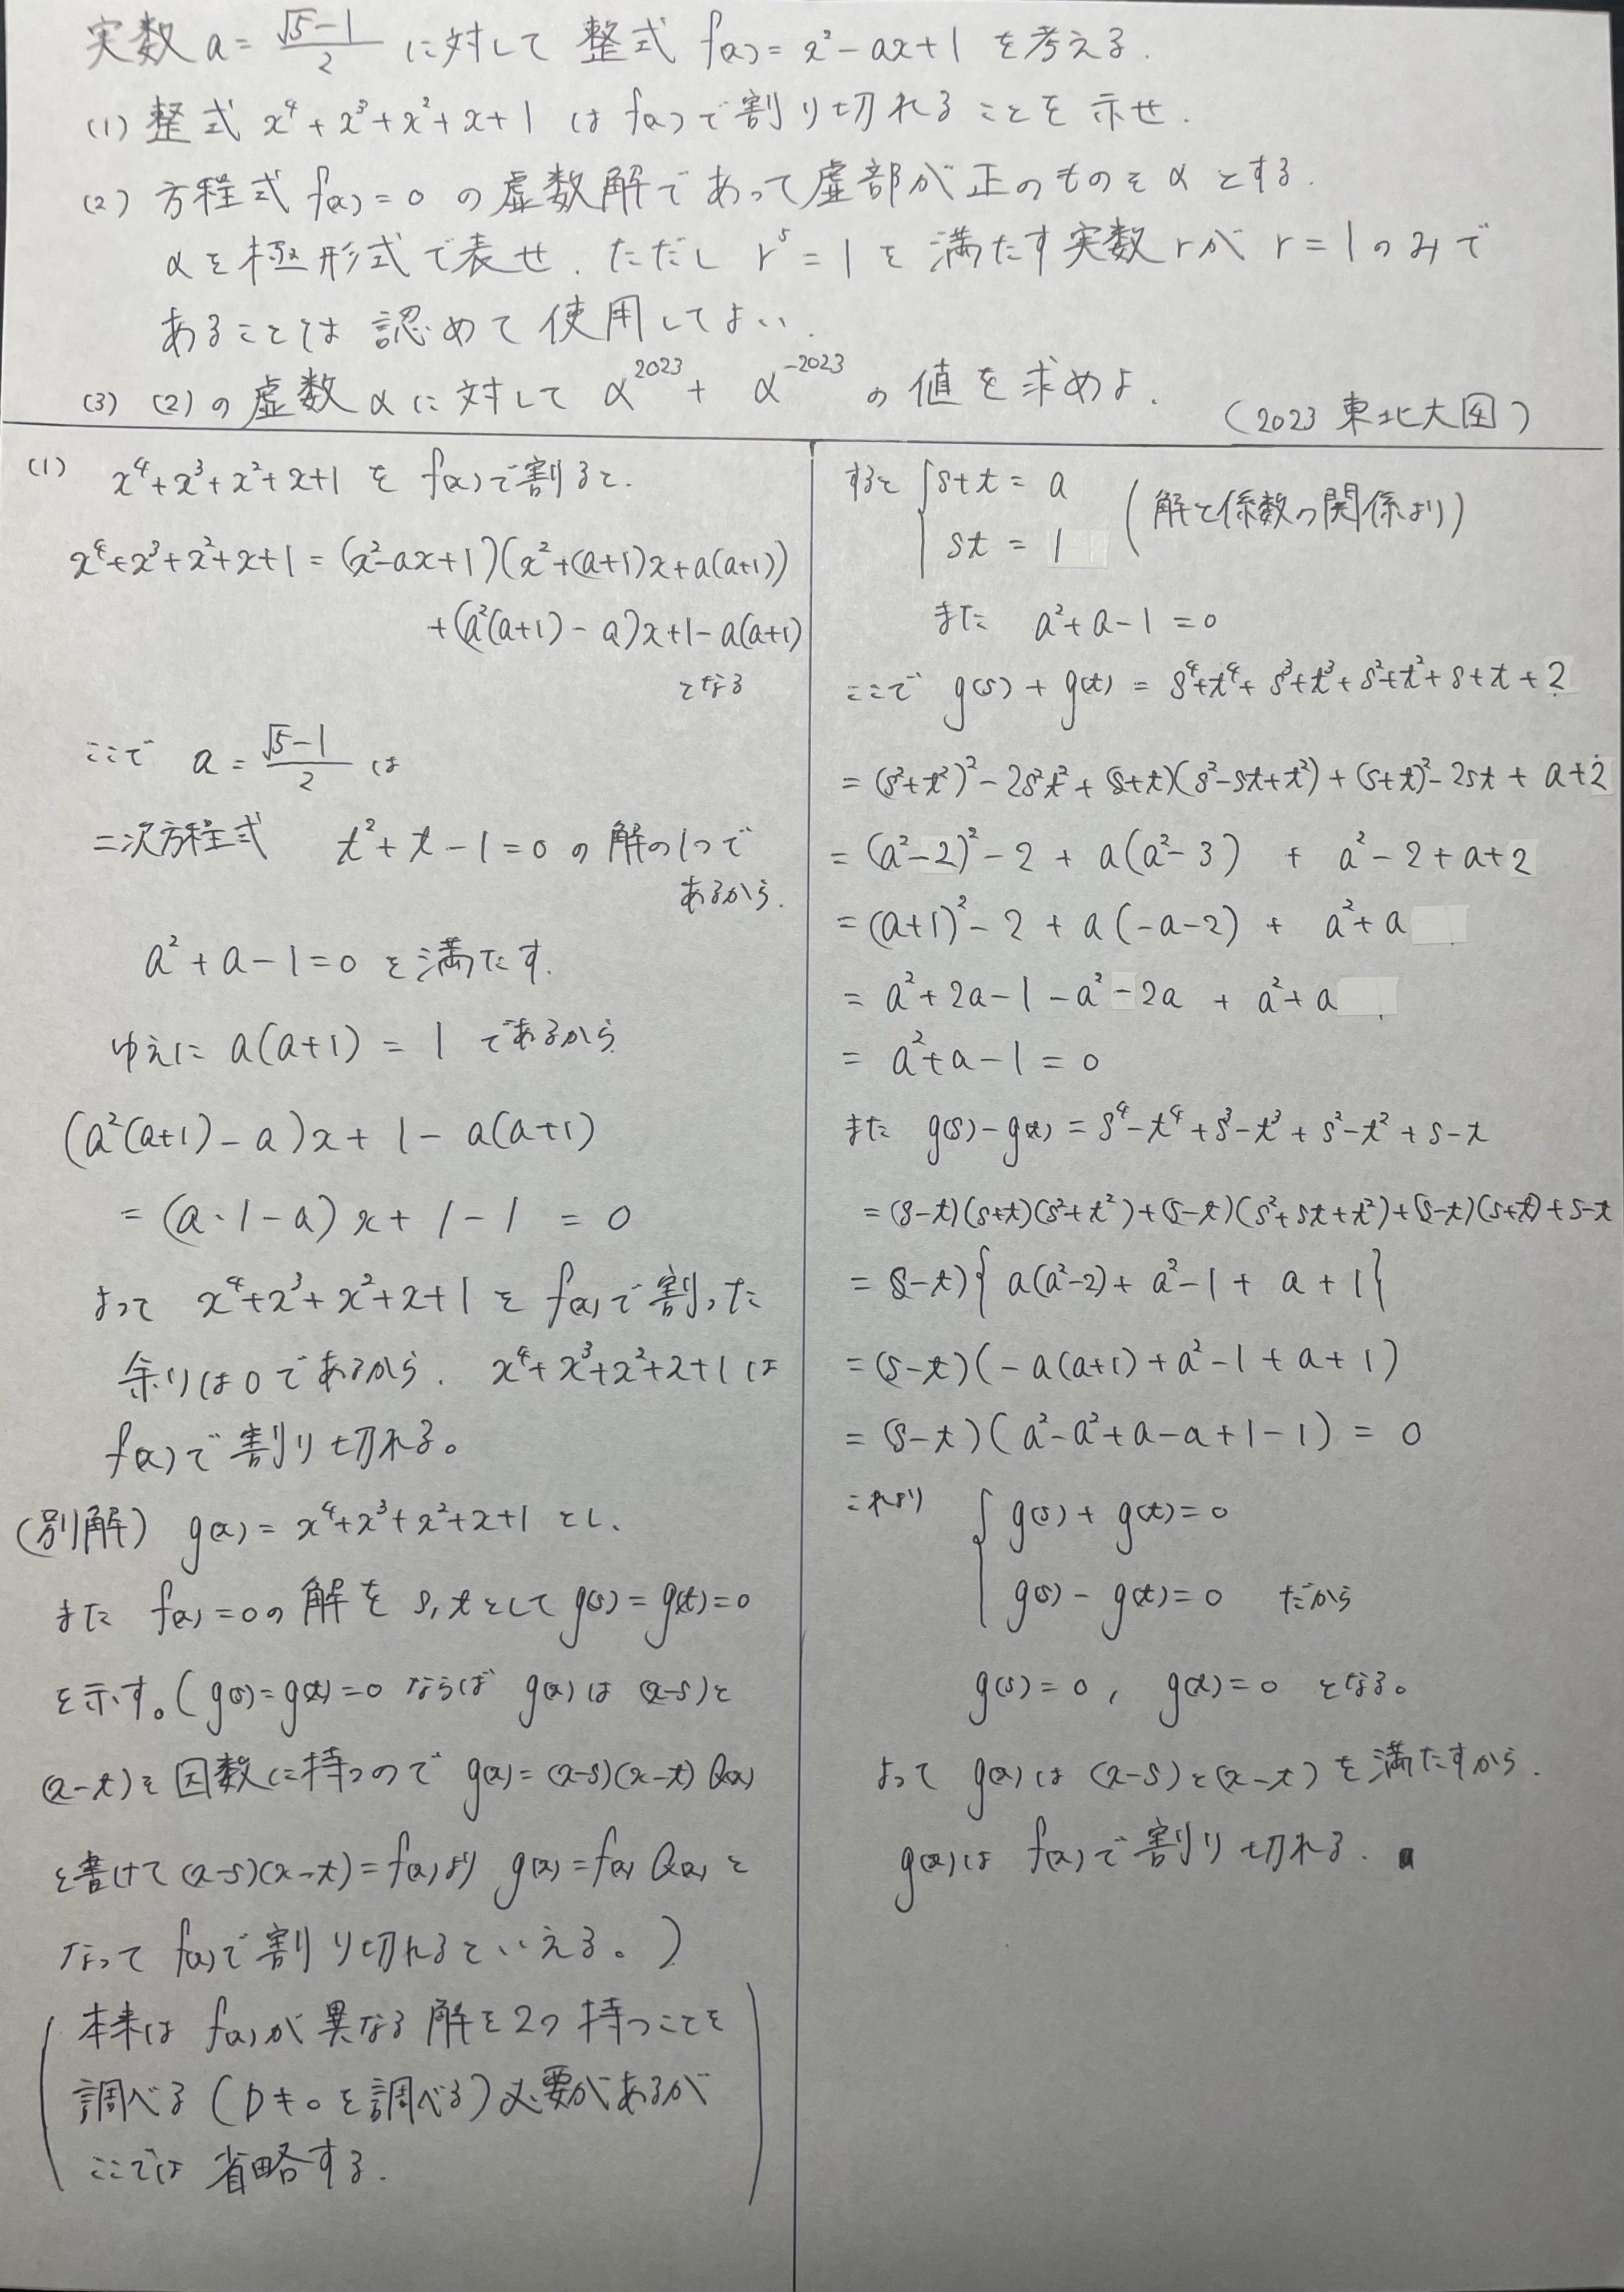 実数 a = (√5-1)/2 に対して 整式 f(x) = x²-ax+1 を考える.
(1) 整式 x⁴+x³+x²+x+1 は f(x)で割り切れることを示せ.
(2) 方程式 f(x)=0 の虚数解であって虚部が正のものを α とする.
αを極形式で表せ. ただし r⁵=1を満たす実数rが r=1のみで
あることは認めて使用してよい.
(3) (2)の虚数αに対して α²⁰²³ + α⁻²⁰²³ の値を求めよ.
(2023 東北大 4)
(1) x⁴+x³+x²+x+1 を f(x)で割ると.
x⁴+x³+x²+x+1 = (x²-ax+1)(x²+(a+1)x+a(a+1))
+(a²(a+1)-a)x+1-a(a+1)
となる
ここで a = (√5-1)/2 は
二次方程式 t²+t-1=0 の解の1つで
あるから.
a²+a-1=0 を満たす.
ゆえに a(a+1) = 1 であるから
(a²(a+1)-a)x+1-a(a+1)
= (a・1-a)x+1-1 = 0
よって x⁴+x³+x²+x+1 を f(x)で割った
余りは0であるから. x⁴+x³+x²+x+1は
f(x)で割り切れる。
(別解) g(x) = x⁴+x³+x²+x+1 とし、
また f(x)=0の解を s,tとして g(s)=g(t)=0
を示す。(g(s)=g(t)=0 ならば g(x)は (x-s)と
(x-t)を因数に持つので g(x)=(x-s)(x-t)Q(x)
と書けて (x-s)(x-t)=f(x)より g(x)=f(x)Q(x)と
なって f(x)で割り切れるといえる。)
(本来は f(x)が異なる解を2つ持つことを
調べる (D≠0を調べる)必要があるが
ここでは省略する.)
すると { s+t = a
st = 1 (解と係数の関係より)
また a²+a-1=0
ここで g(s)+g(t) = s⁴+t⁴+s³+t³+s²+t²+s+t+2
= (s²+t²)²-2s²t²+(s+t)(s²-st+t²)+(s+t)²-2st+a+2
= (a²-2)²-2+a(a²-3) + a²-2+a+2
= (a+1)²-2+a(-a-2) + a²+a
= a²+2a-1-a²-2a + a²+a
= a²+a-1=0
また g(s)-g(t) = s⁴-t⁴+s³-t³+s²-t²+s-t
= (s-t)(s+t)(s²+t²)+(s-t)(s²+st+t²)+(s-t)(s+t)+s-t
= (s-t){a(a²-2)+a²-1+a+1}
= (s-t)(-a(a+1)+a²-1+a+1)
= (s-t)(a²-a²+a-a+1-1) = 0
これより { g(s)+g(t)=0
g(s)-g(t)=0 だから
g(s)=0, g(t)=0 となる。
よって g(x)は (x-s)と(x-t)を満たすから.
g(x)は f(x)で割り切れる. ∎